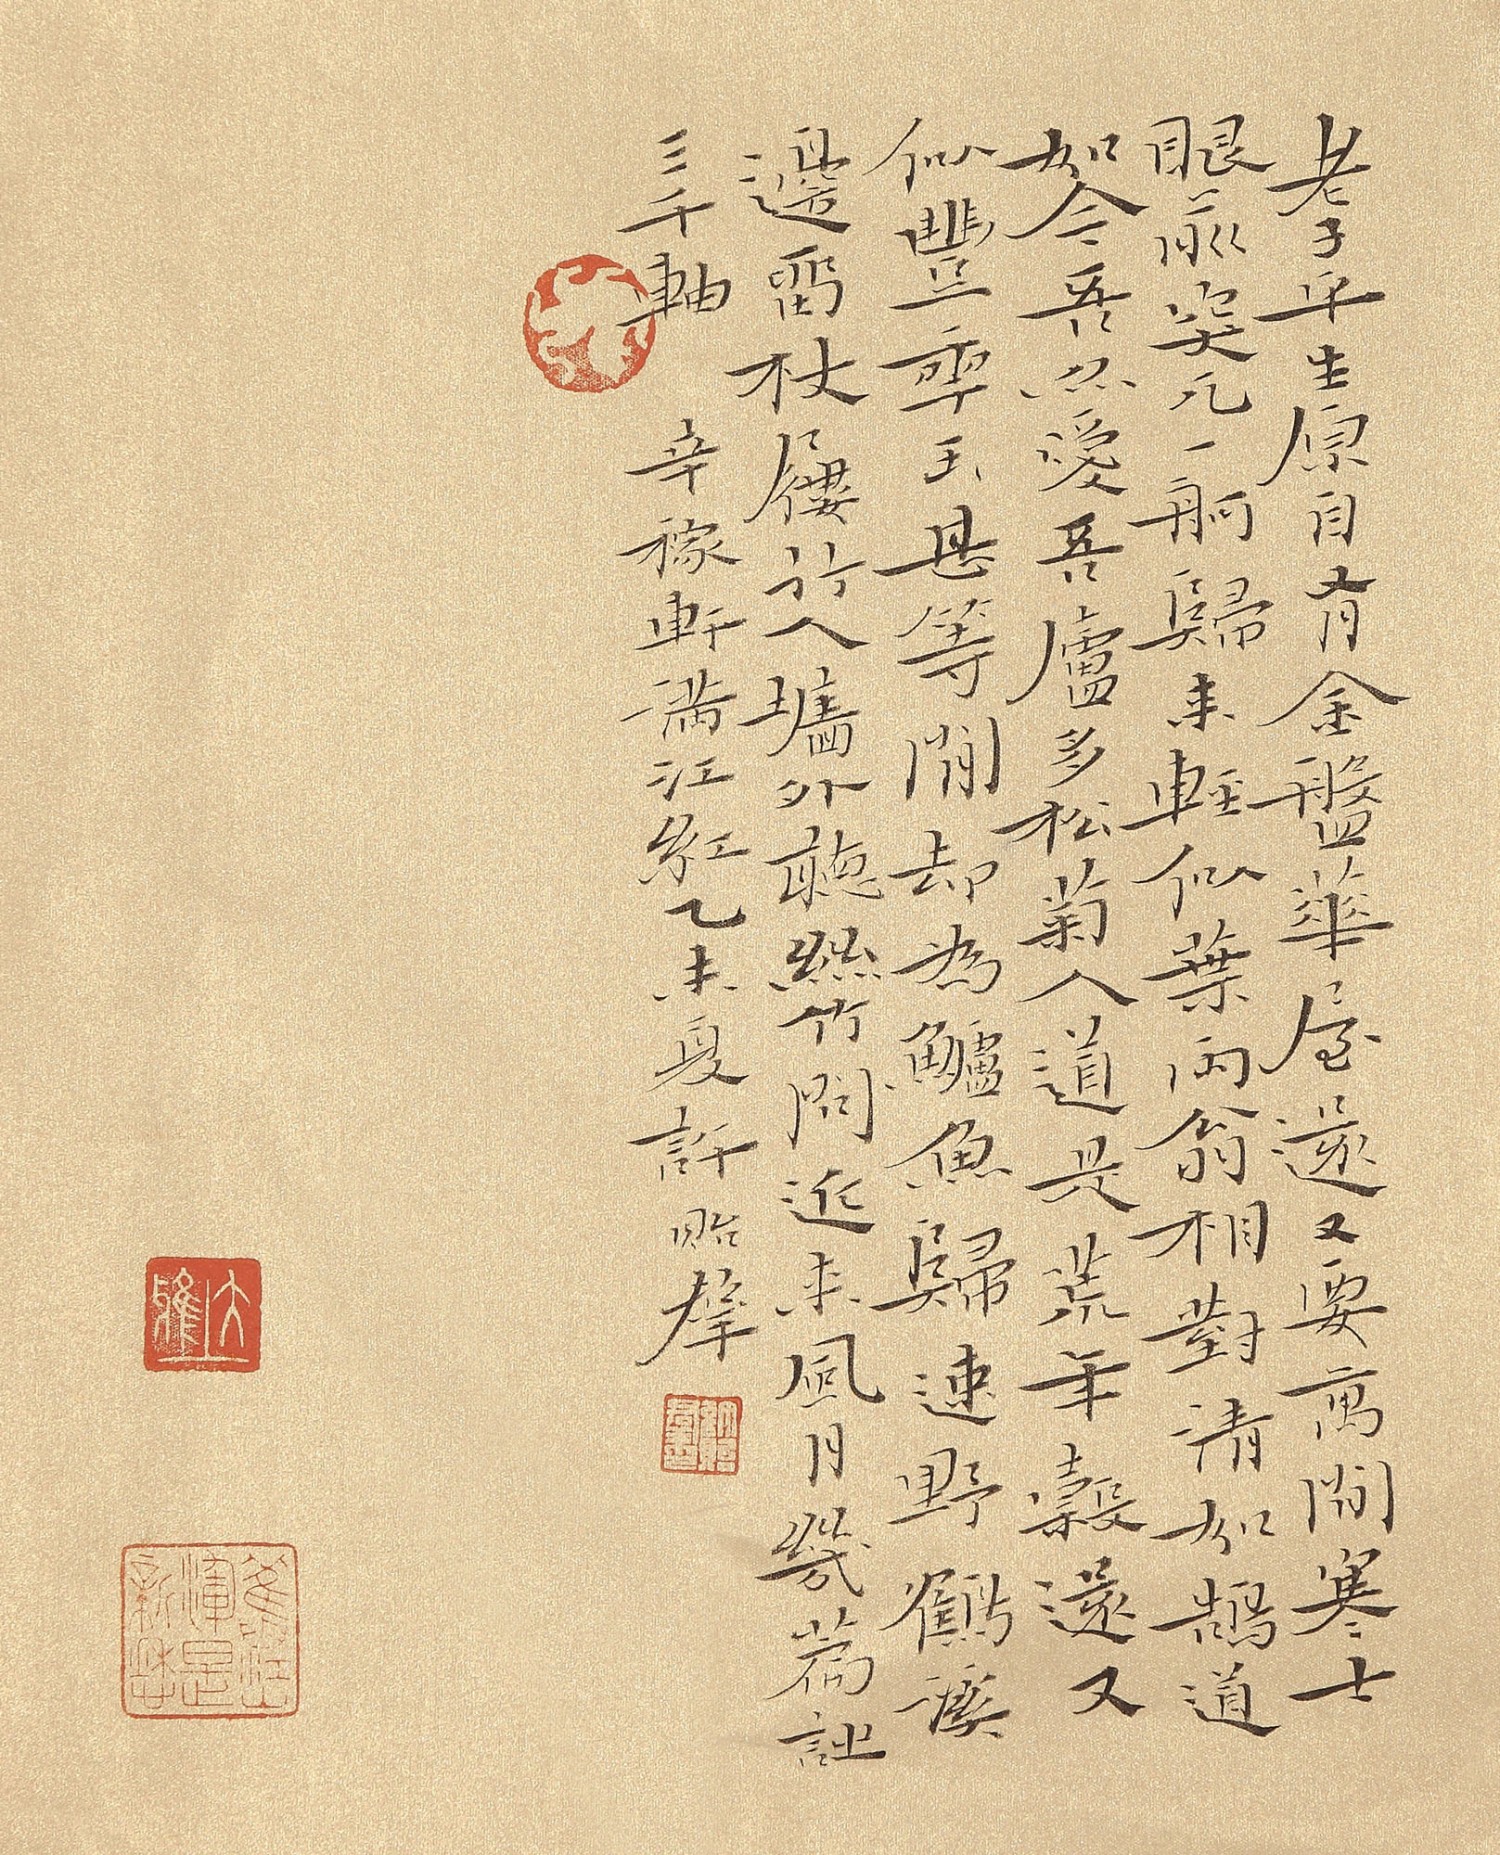 老子平生原自有金盤華屋還又要萬間寒士
眼前突兀一舸歸來輕似葉兩翁相對清如鵠道
如今吾亦愛吾廬多松菊人道是荒年穀還又
似豐年玉甚等閒却為鱸魚歸速野鶴溪
邊留杖屨行人牆外聽絲竹問近來風月幾篇詩
三千軸 辛稼軒滿江紅乙未夏許貽
大雅
舊江山渾是新愁